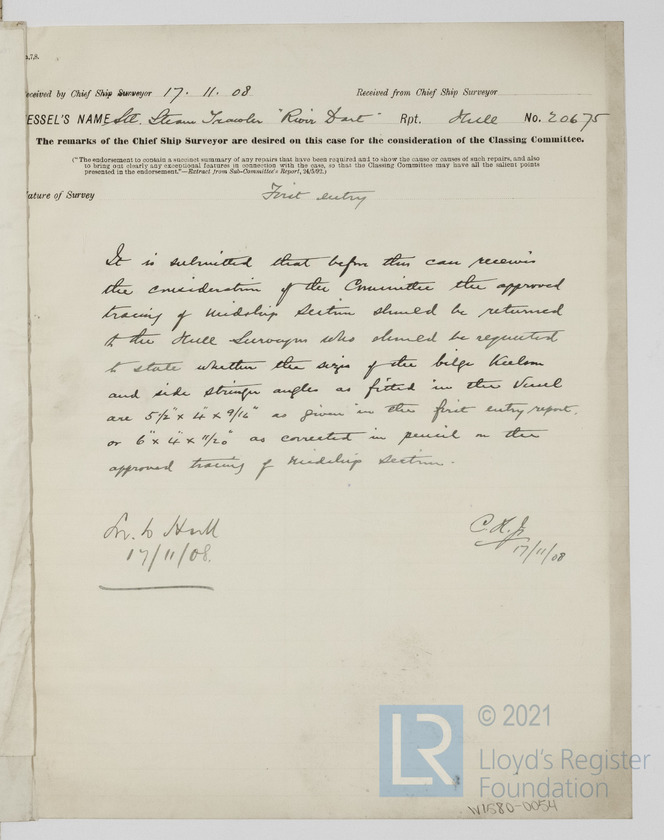 7,8.
eceived by Chief Ship Surveyor 17. 11. 08 Received from Chief Ship Surveyor
ESSEL'S NAME Stl. Steam Trawler "River Dart" Rpt. Hull No. 20675
The remarks of the Chief Ship Surveyor are desired on this case for the consideration of the Classing Committee.
("The endorsement to contain a succinct summary of any repairs that have been required and to show the cause or causes of such repairs, and also
to bring out clearly any exceptional features in connection with the case, so that the Classing Committee may have all the salient points
presented in the endorsement."—Extract from Sub-Committee's Report, 24/5/92.)
ature of Survey First entry
It is submitted that before this can receive
the consideration of the Committee the approved
tracing of Midship Section should be returned
to the Hull Surveyors who should be requested
to state whether the sizes of the bilge Keelson
and side stringer angles as fitted in the Vessel
are 5 1/2" x 4" x 9/16" as given in the first entry report,
or 6" x 4" x 11/20" as corrected in pencil on the
approved tracing of Midship Section.
to Hull
17/11/08.
17/11/08
LR
© 2021
Lloyd's Register
Foundation
W1580-0054